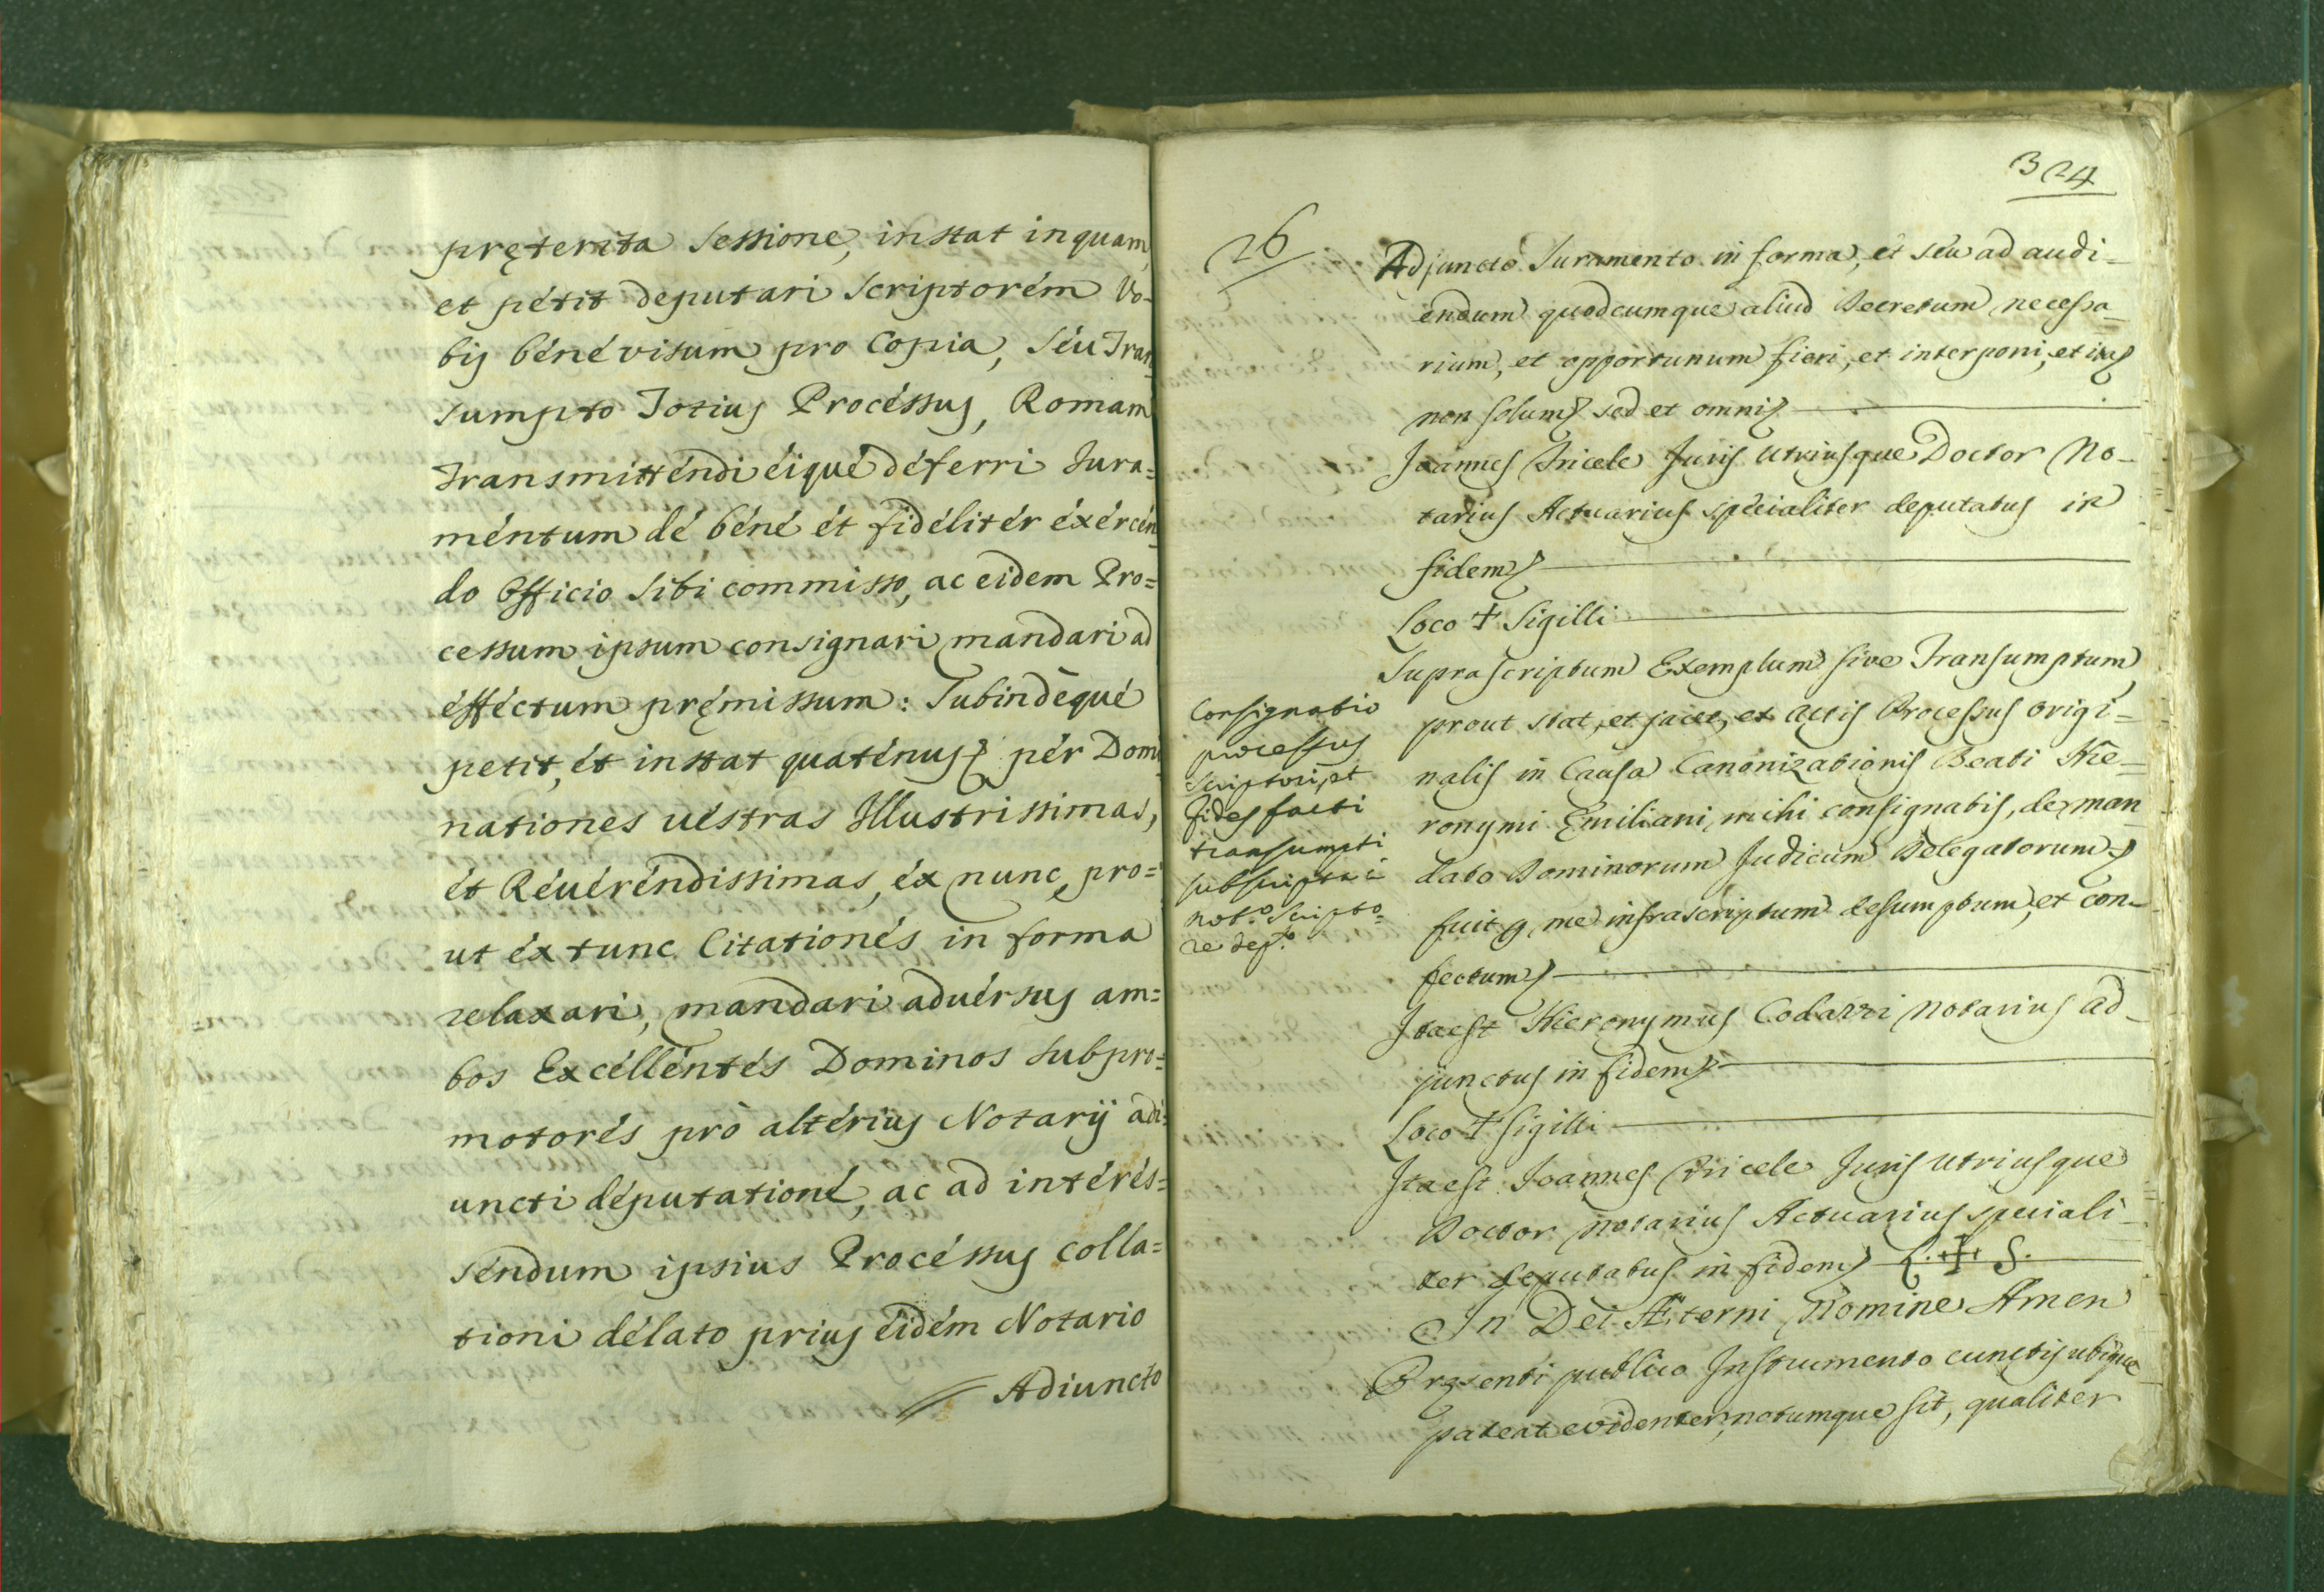 pręterita Sessione, instat inquam,
et pétit deputari Scriptorém Vo-
bis béné visum pro Copia, Séu Tran-
sumpto Totius Procéssus, Romam
Transmitténdi éiqué déferri Iura=
méntum dé béné ét fidélitér éxércén-
do Officio Sibi commisso, ac eidem Pro=
cessum ipsum consignari mandari ad
éfféctum pręmissum: Subindèqué
petit, ét instat quaténus pér Domi
nationes uéstras Illustrissimas,
ét Réuéréndissimas, éx nunc, pro=
ut éx tunc Citationés in forma
relaxari, mandari aduérsus am=
bos Excélléntés Dominos Subpro=
motorés prò altérius Notarij adi=
uncti députationé, ac ad intérés=
séndum ipsius Procéssus colla=
tioni délato prius éidém Notario
Adiuncto
324
26
Adjuncto Juramento in forma, et seu ad audi-
endum quodcumque aliud Decretum necessa-
rium, et opportunum fieri, et interponi, et ita
non solum sed et omni
Joannes Juris Utriusque Doctor No-
tarius Actuarius specialiter deputatus in
fidem
Loco + Sigilli
Suprascriptum Exemplum sive Transumptum
prout stat, et jacet, ex Actis Processus origi=
nalis in Causa Canonizationis Beati Hie=
ronymi Emiliani mihi consignatis, de man
dato Dominorum Judicum Delegatorum
fuit me infrascriptum desumptum, et con-
fectum
Consignatio
processus
fides facti
transumpti
not.o Scripto=
re dep.to
Ita est Hieronymus Notarius ad-
junctus in fidem
Loco + Sigilli
Ita est Joannes Juris Utriusque
Doctor Notarius Actuarius speciali-
ter deputatus in fidem L.+S.
In Dei Æterni Nomine Amen
Pręsenti publico Instrumento cunctis ubique
pateat evidenter, notumque sit, qualiter